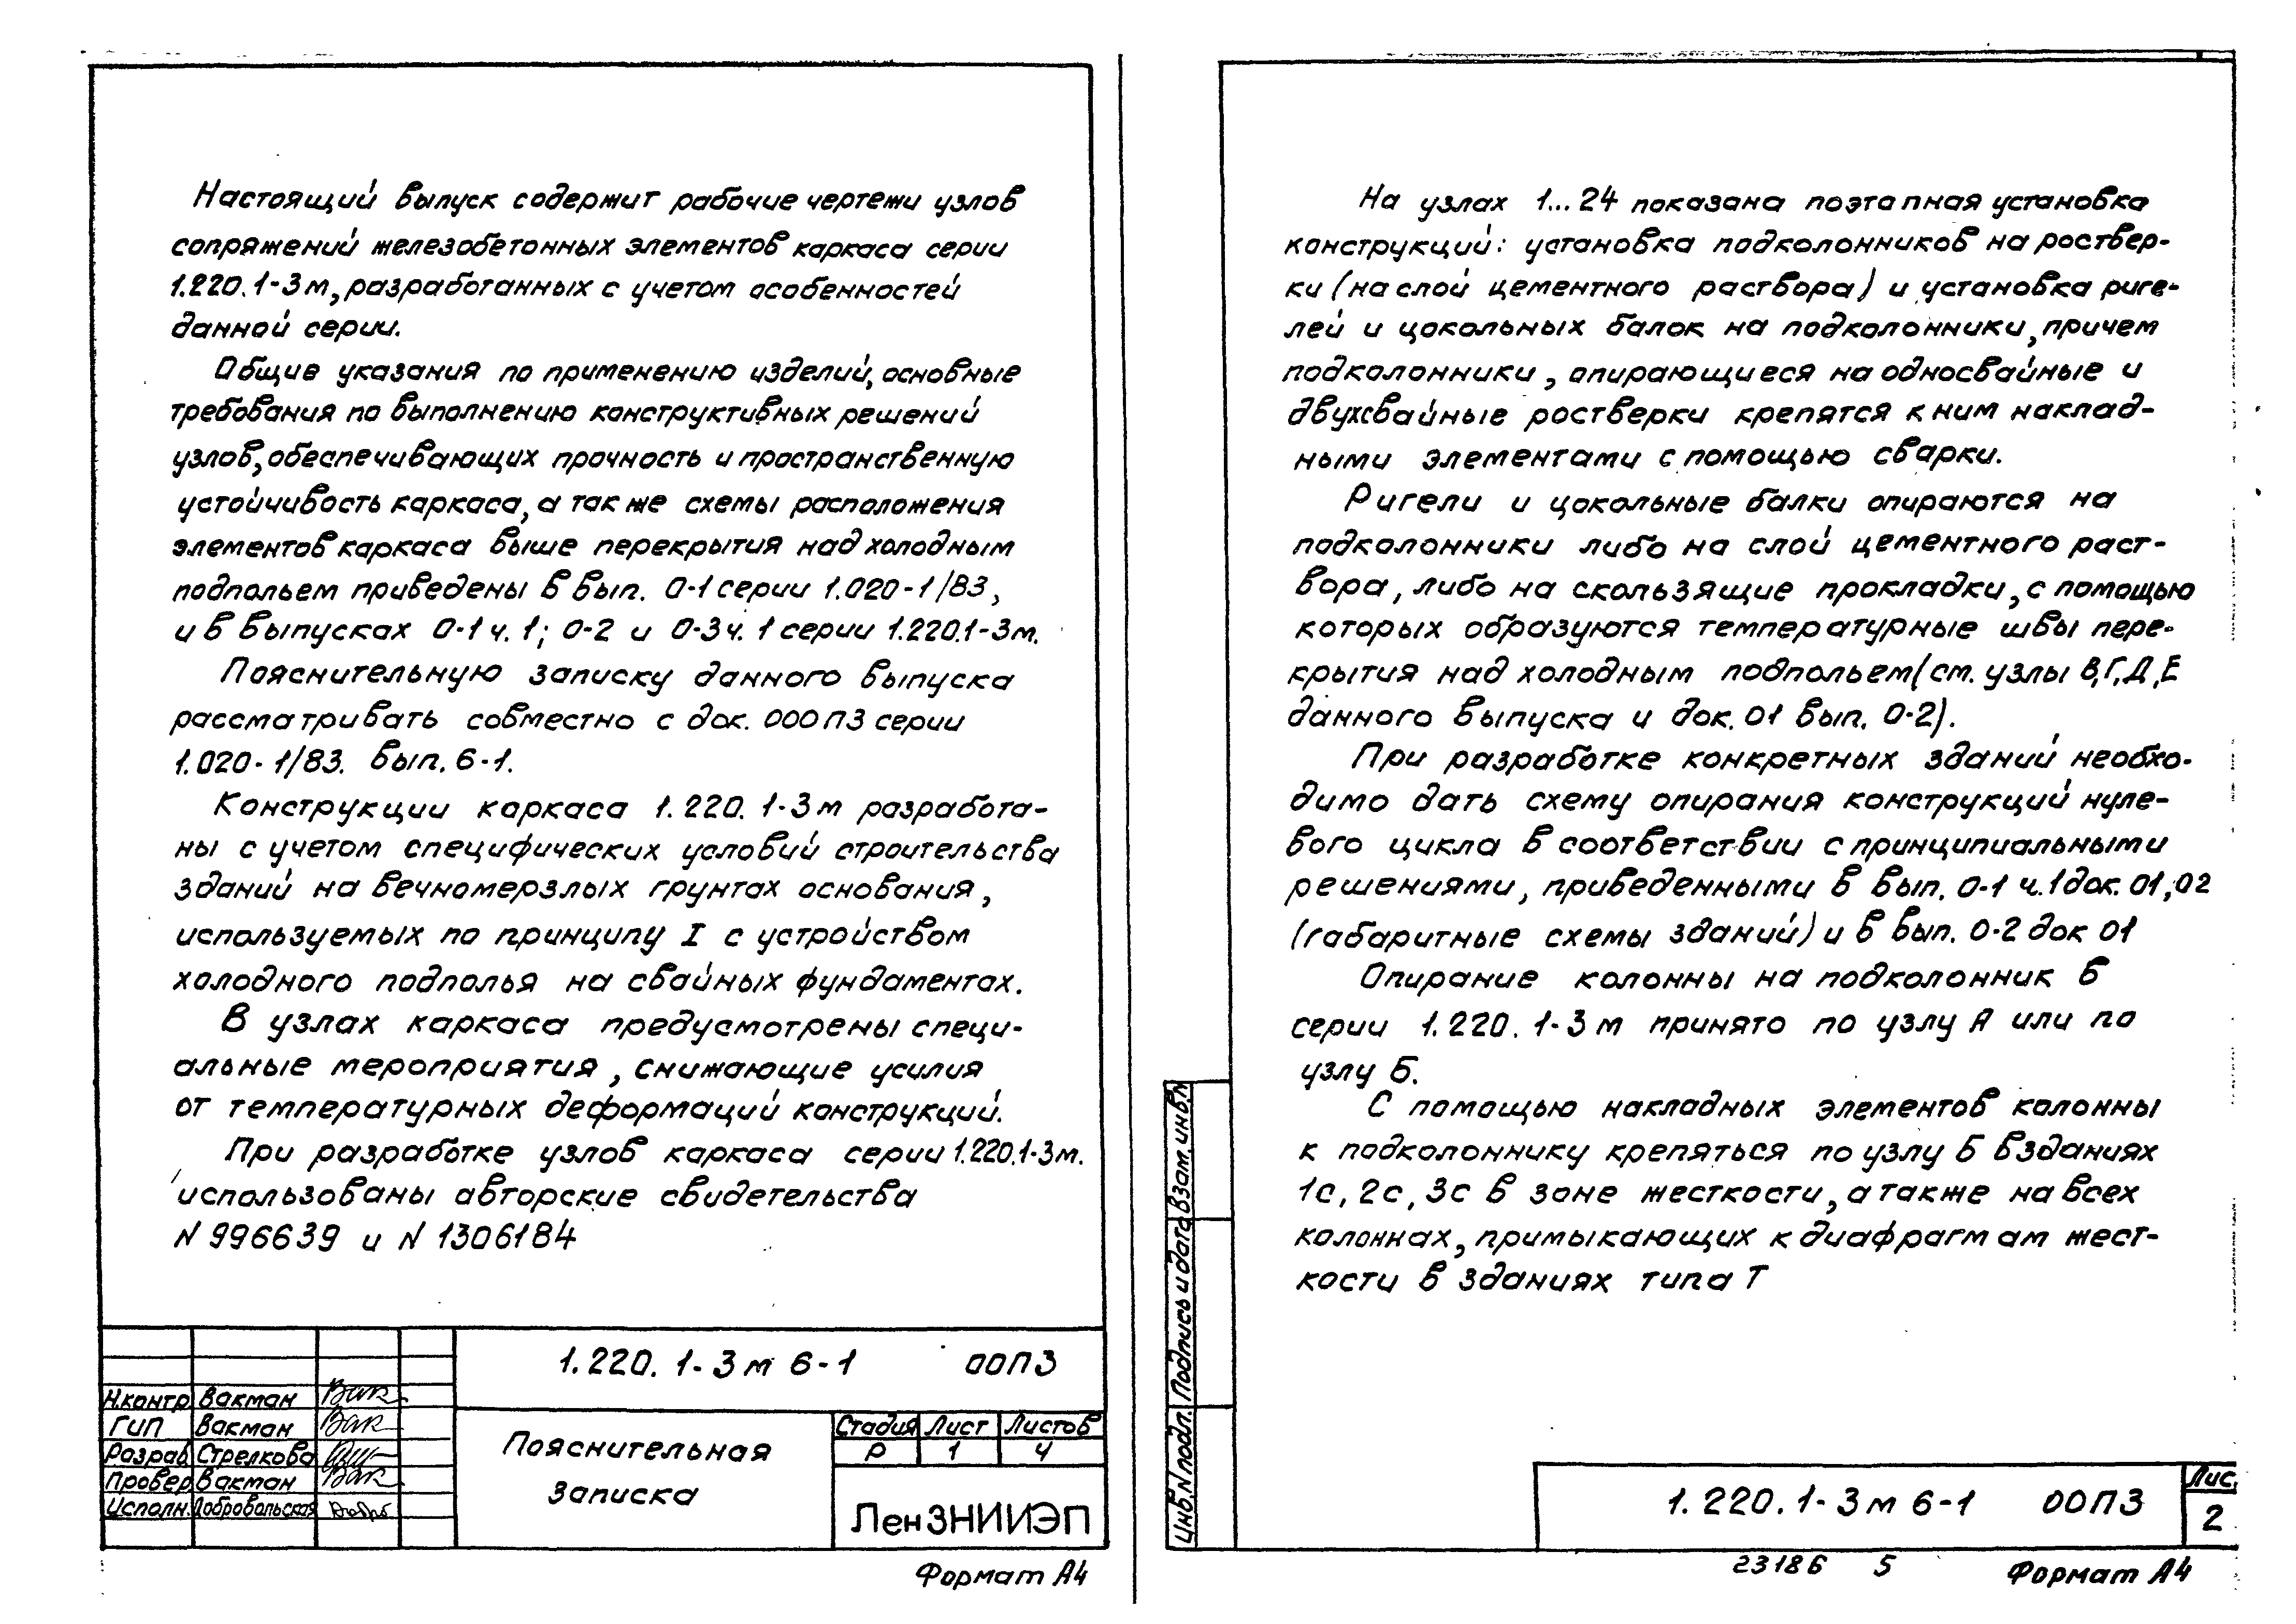 Настоящий выпуск содержит рабочие чертежи узлов
сопряжений железобетонных элементов каркаса серии
1.220.1-3м, разработанных с учетом особенностей
данной серии.
Общие указания по применению изделий, основные
требования по выполнению конструктивных решений
узлов, обеспечивающих прочность и пространственную
устойчивость каркаса, а так же схемы расположения
элементов каркаса выше перекрытия над холодным
подпольем приведены в вып. 0-1 серии 1.020-1/83,
и в выпусках 0-1 ч. 1; 0-2 и 0-3 ч. 1 серии 1.220.1-3м.
Пояснительную записку данного выпуска
рассматривать совместно с док. 000ПЗ серии
1.020-1/83. вып. 6-1.
Конструкции каркаса 1.220.1-3м разработа-
ны с учетом специфических условий строительства
зданий на вечномерзлых грунтах основания,
используемых по принципу I с устройством
холодного подполья на свайных фундаментах.
В узлах каркаса предусмотрены специ-
альные мероприятия, снижающие усилия
от температурных деформаций конструкций.
При разработке узлов каркаса серии 1.220.1-3м.
использованы авторские свидетельства
N 996639 и N 1306184
1.220.1-3м 6-1 00ПЗ
Н.контр Вакман Вак
ГИП Вакман Вак
Разраб Стрелкова
Провер Вакман Вак
Исполн. Добровольская Добр
Пояснительная
Записка
Стадия Лист Листов
Р 1 4
ЛенЗНИИЭП
Формат А4
На узлах 1...24 показана поэтапная установка
конструкций: установка подколонников на роствер-
ки (на слой цементного раствора) и установка риге-
лей и цокольных балок на подколонники, причем
подколонники, опирающиеся на односвайные и
двухсвайные ростверки крепятся к ним наклад-
ными элементами с помощью сварки.
Ригели и цокольные балки опираются на
подколонники либо на слой цементного раст-
вора, либо на скользящие прокладки, с помощью
которых образуются температурные швы пере-
крытия над холодным подпольем (см. узлы В,Г,Д,Е
данного выпуска и док. 01 вып. 0-2).
При разработке конкретных зданий необхо-
димо дать схему опирания конструкций нуле-
вого цикла в соответствии с принципиальными
решениями, приведенными в вып. 0-1 ч.1 док. 01,02
(габаритные схемы зданий) и в вып. 0-2 док 01
Опирание колонны на подколонник Б
серии 1.220.1-3м принято по узлу А или по
узлу Б.
С помощью накладных элементов колонны
к подколоннику крепяться по узлу Б в зданиях
1с, 2с, 3с в зоне жесткости, а также на всех
колоннах, примыкающих к диафрагмам жест-
кости в зданиях типа Т
Инв.N подл. Подпись и дата Взам.инв.N
1.220.1-3м 6-1 00ПЗ
Лис.
2
23186 5
Формат А4